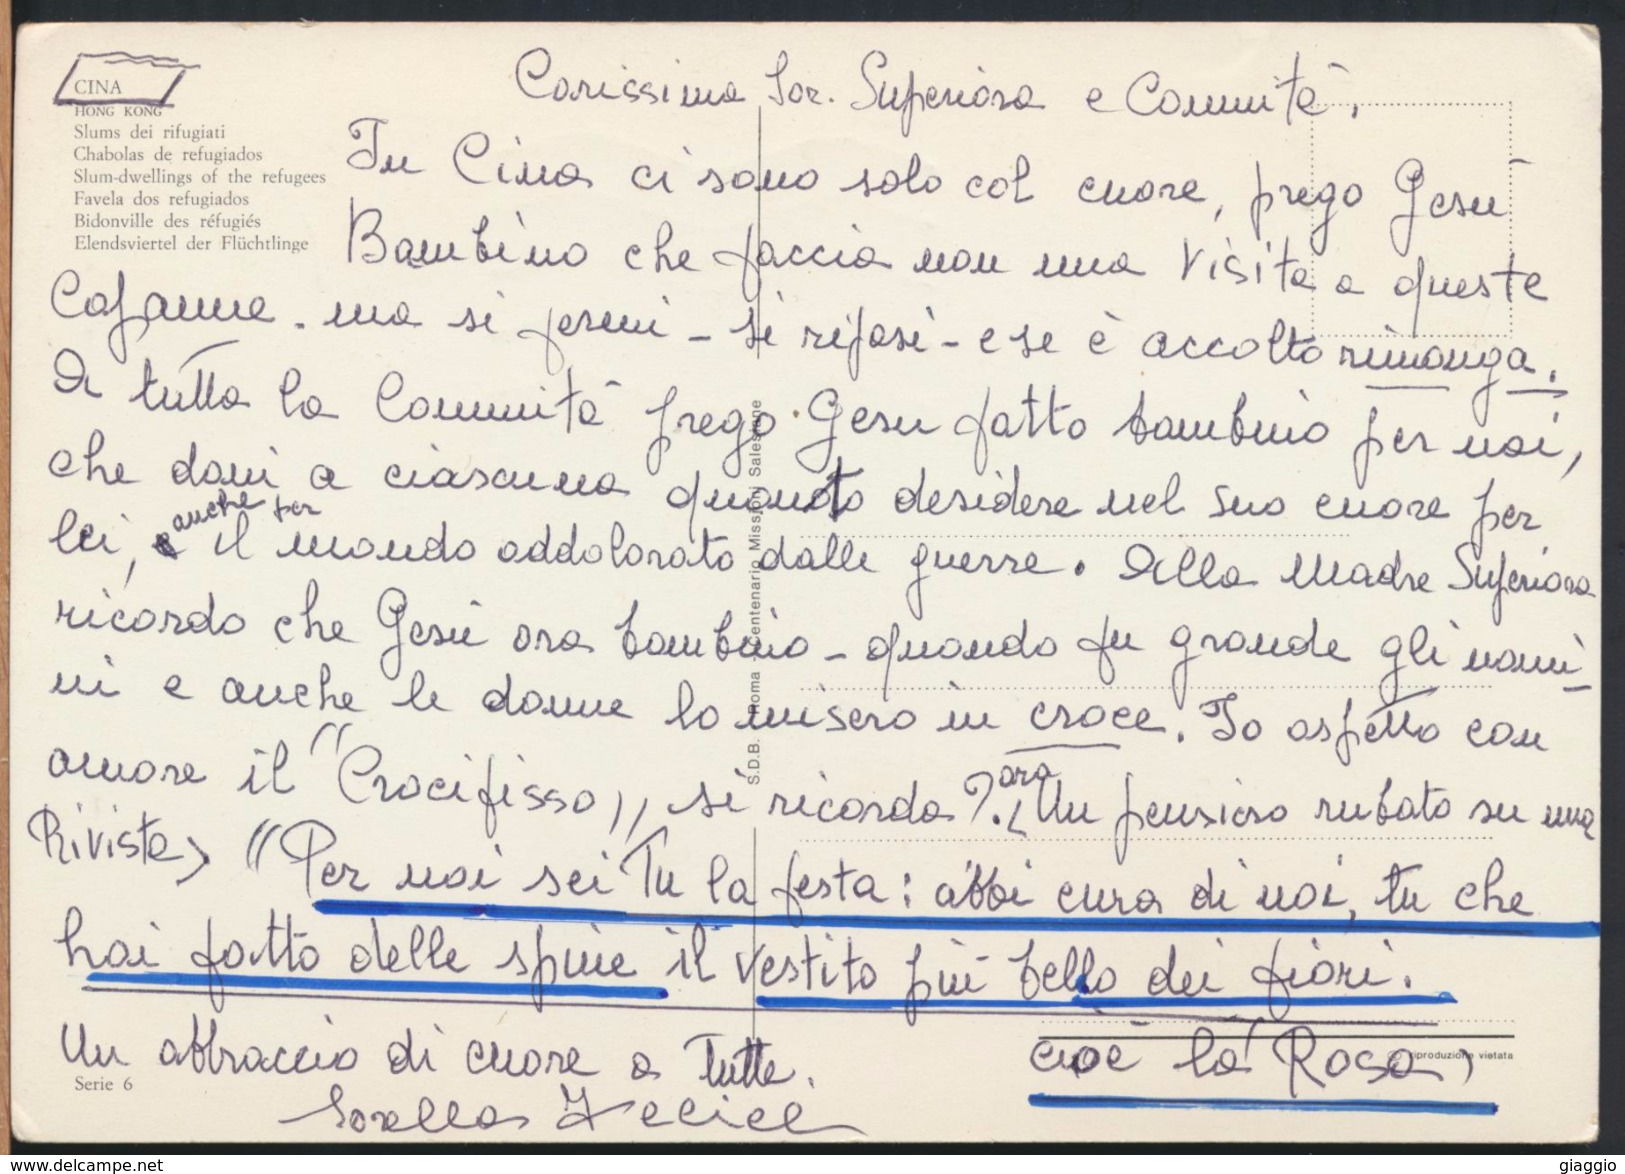 CINA
HONG KONG
Slums dei rifugiati
Chabolas de refugiados
Slum-dwellings of the refugees
Favela dos refugiados
Bidonville des réfugiés
Elendsviertel der Flüchtlinge
Carissima Sor. Superiora e Comunità,
In Cina ci sono solo col cuore, prego Gesù
Bambino che faccia non una visita a queste
Capanne - ma si fermi - si riposi - e se è accolto rimanga.
A tutta la Comunità prego Gesù fatto bambino per noi,
che doni a ciascuna quanto desidera nel suo cuore per
lei, e anche per il mondo addolorato dalle guerre. Alla Madre Superiora
ricordo che Gesù ora bambino - quando fu grande gli uomi-
ni e anche le donne lo misero in croce. Io aspetto con
amore il "Crocifisso", si ricorda? ora Un pensiero rubato su una
Rivista, "Per noi sei Tu la festa: abbi cura di noi, tu che
hai fatto delle spine il vestito più bello dei fiori.
cioè la Rosa,
Un abbraccio di cuore a Tutte.
Sorella
S.D.B. Roma - Centenario Missioni Salesiane
riproduzione vietata
Serie 6
giaggio
www.delcampe.net